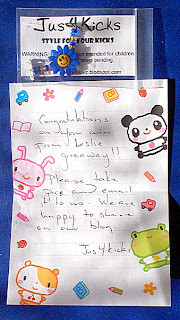 Jus4Kicks
STYLE FOR YOUR KICKS
WARNING: not intended for children
blogspot.com
Congratulations
on you win
from Leslie
giveaway!!
Please take
pics and email
it to us. We are
happy to share
on our blog.
Jus4Kicks